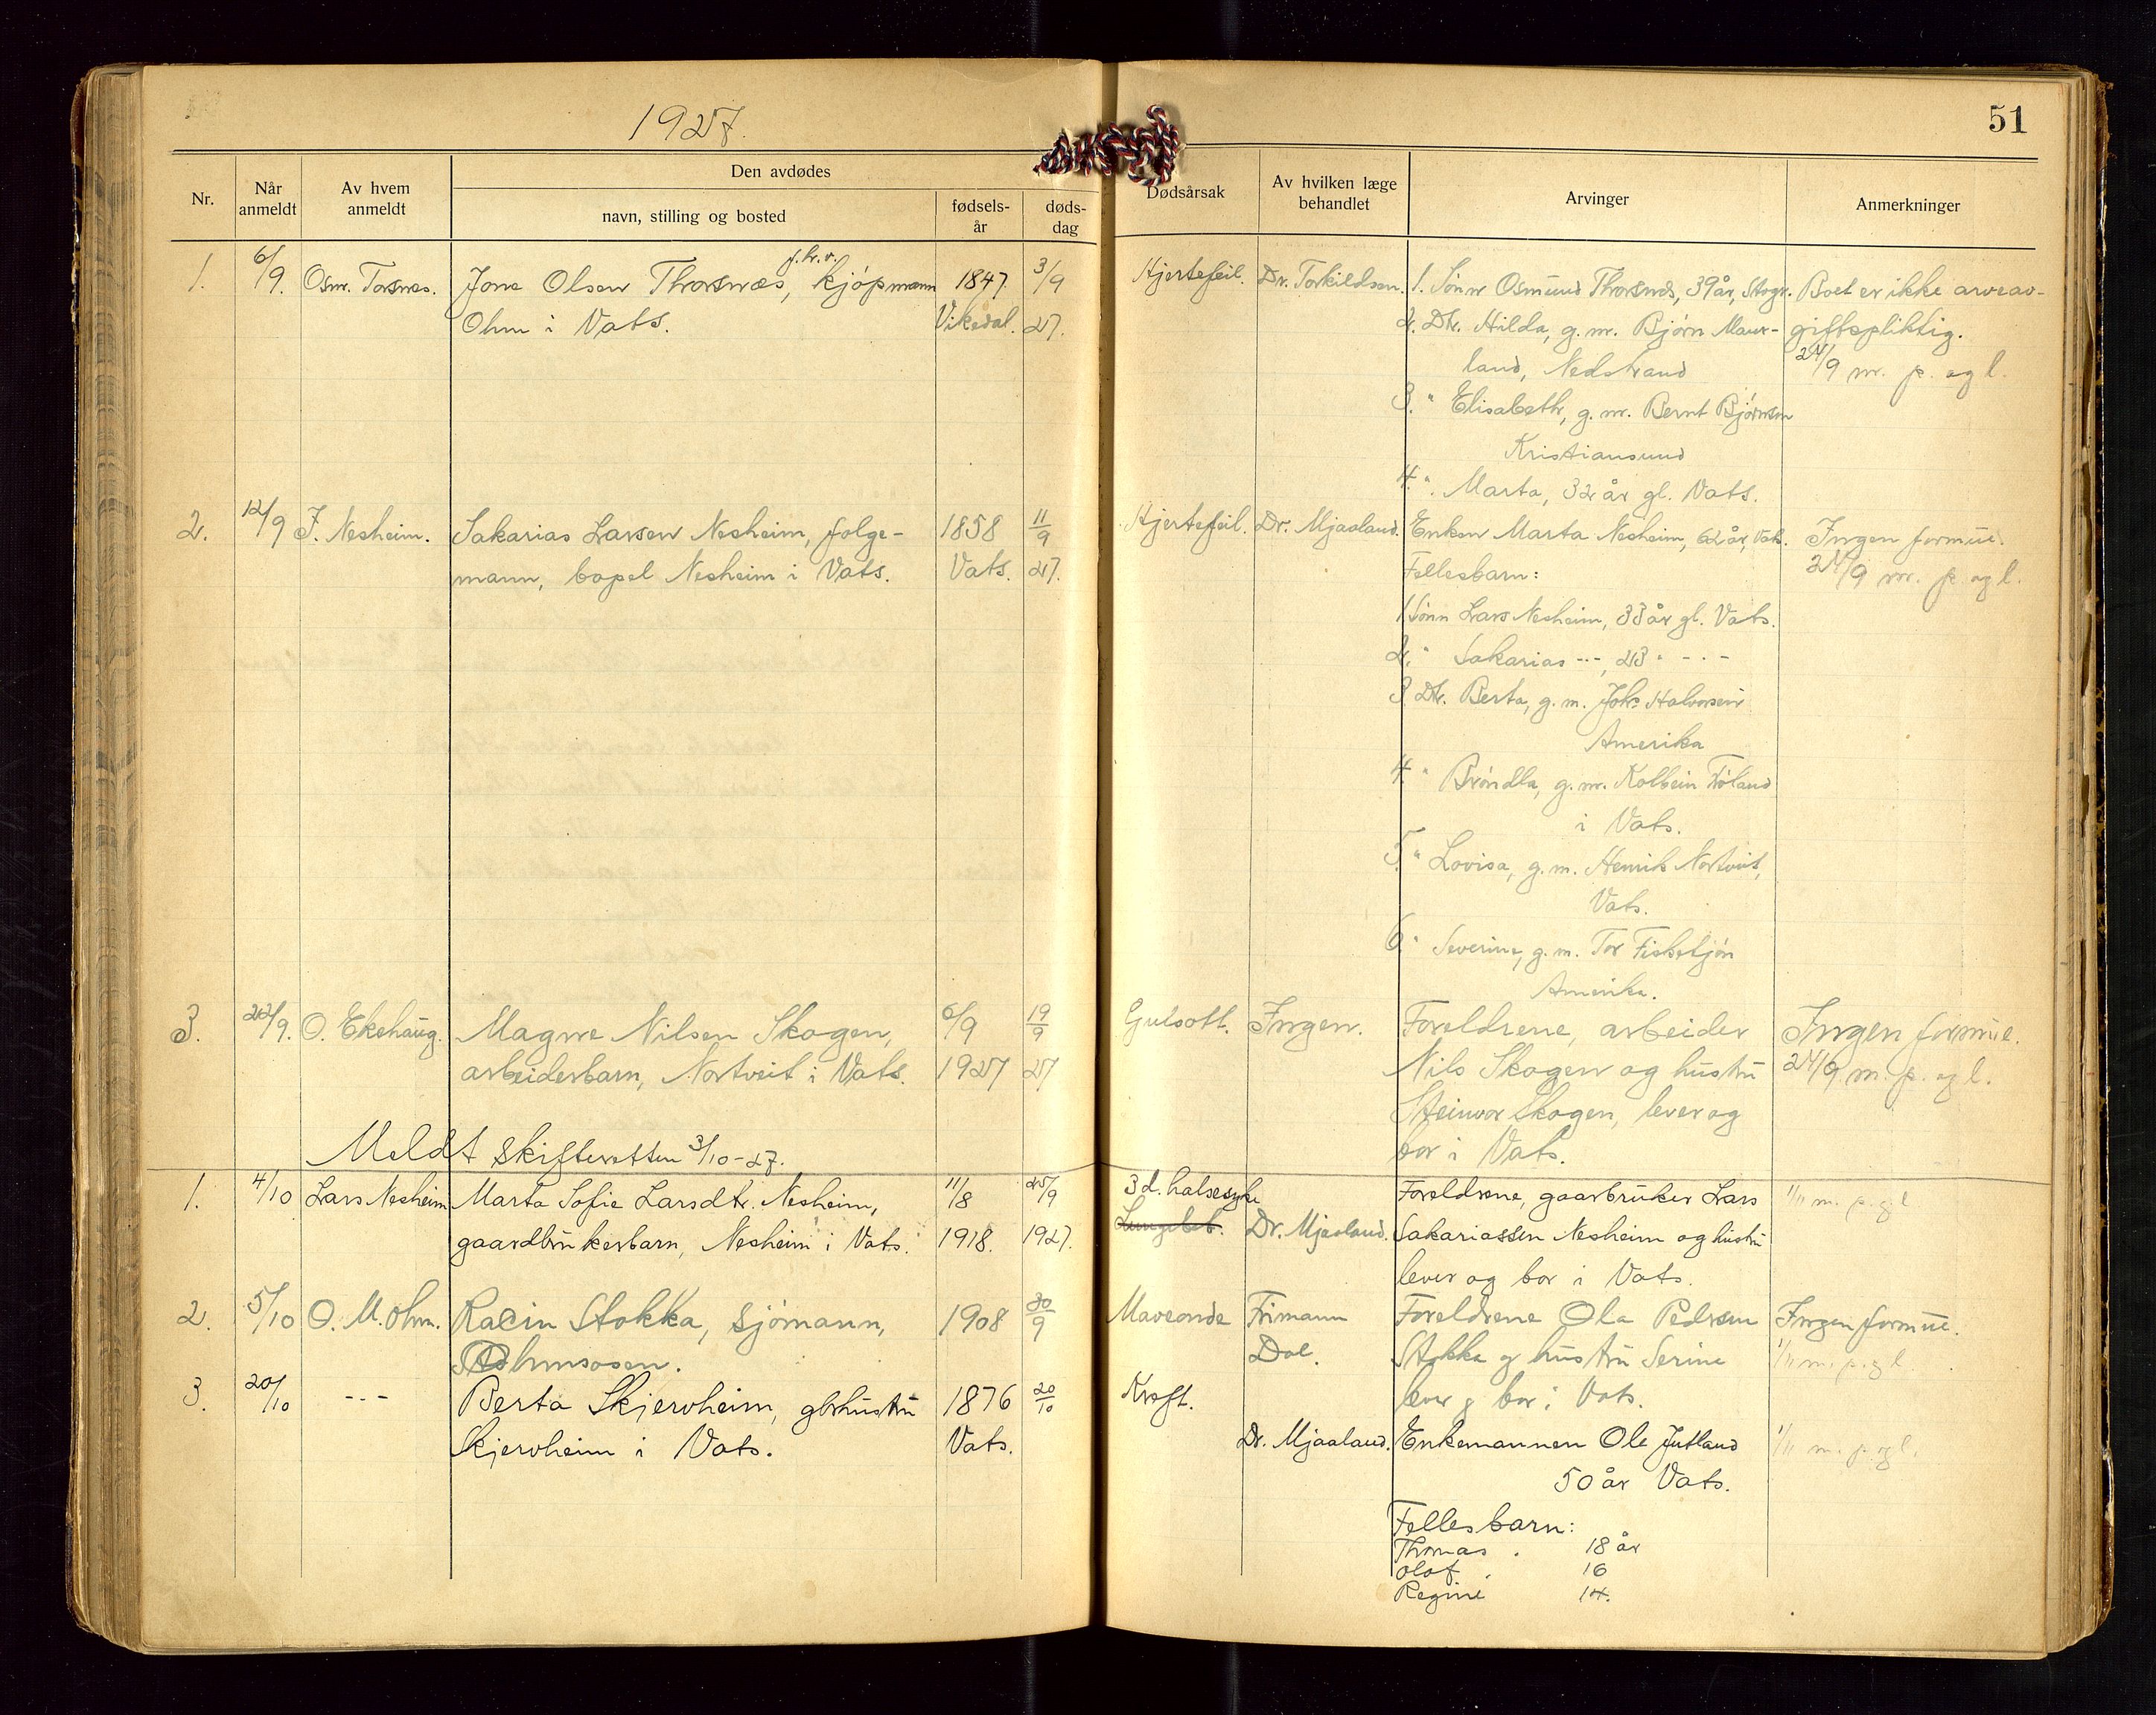 1927.
51
Nr.
Når anmeldt
Av hvem anmeldt
Den avdødes
navn, stilling og bosted
fødsels-år
døds-dag
Dødsårsak
Av hvilken læge behandlet
Arvinger
Anmerkninger
1. 6/9. Osm. Torsnes. Jone Olsen Thorsnæs, f.h.v. kjøpmann 1847 3/9 Hjertefeil. Dr. Torkildsen. 1. Sønn Osmund Thorsnes, 39 år, Stogr. Boet er ikke arveav-
Ohm i Vats. Vikedal. 27. 2. Dtr. Hilda, g.m. Bjørn Maur- giftspliktig.
land, Nedstrand 24/9 m. p. og l.
3. " Elisabeth, g.m. Bernt Bjørnsen
Kristiansund
4. ". Marta, 32 år gl. Vats.
2. 12/9 J. Nesheim. Sakarias Larsen Nesheim, følge- 1858 11/9 Hjertefeil. Dr. Mjaaland. Enken Marta Nesheim, 62 år, Vats. Ingen formue.
mann, bopel Nesheim i Vats. Vats. 27. Fellesbarn: 24/9 m. p og l.
1 Sønn Lars Nesheim, 33 år gl. Vats.
2. " Sakarias --- , 23 " - - -
3 Dtr. Berta, g.m. Johs Halvorsen
Amerika
4. " Brøndla, g.m. Kolbein
i Vats.
5. " Lovisa, g.m. Henrik Nortveit,
Vats.
6. " Severine, g.m. Tor Fisketjøn
Amerika.
3. 22/9. O. Ekshaug. Magne Nilsen Skogen, 6/9 19/9 Gulsott. Ingen. Foreldrene, arbeider Ingen formue.
arbeiderbarn, Nortveit i Vats. 1927 27 Nils Skogen og hustru 24/9 m. p. og l.
Steinvor Skogen, lever og
bor i Vats.
Meldt skifteretten 3/10-27.
1. 4/10 Lars Nesheim Marta Sofie Larsdtr. Nesheim, 11/8 25/9 3 d. halsesyke Foreldrene, gaarbruker Lars 1/11 m. p. og l
gaardbrukerbarn, Nesheim i Vats. 1918. 1927. Dr. Mjaaland. Sakariassen Nesheim og hustru
lever og bor i Vats.
2. 5/10 O. M. Ohm. Racin Stokka, sjømann, 1908 30/9 Maveonde Frimann Foreldrene Ola Pedersen Ingen formue.
Ohmsosen. Dal. Stokka og hustru Serine 1/11 m. p. og l.
lever og bor i Vats.
3. 20/10 --- Berta Skjervheim, gbrhustru 1876 20/10 Kreft.
Skjervheim i Vats. Vats. Dr. Mjaaland. Enkemannen Ole Jutland 1/11 m. p. og l.
50 år Vats.
Fellesbarn:
Thomas . 18 år
Olaf . 16
Regine 14.